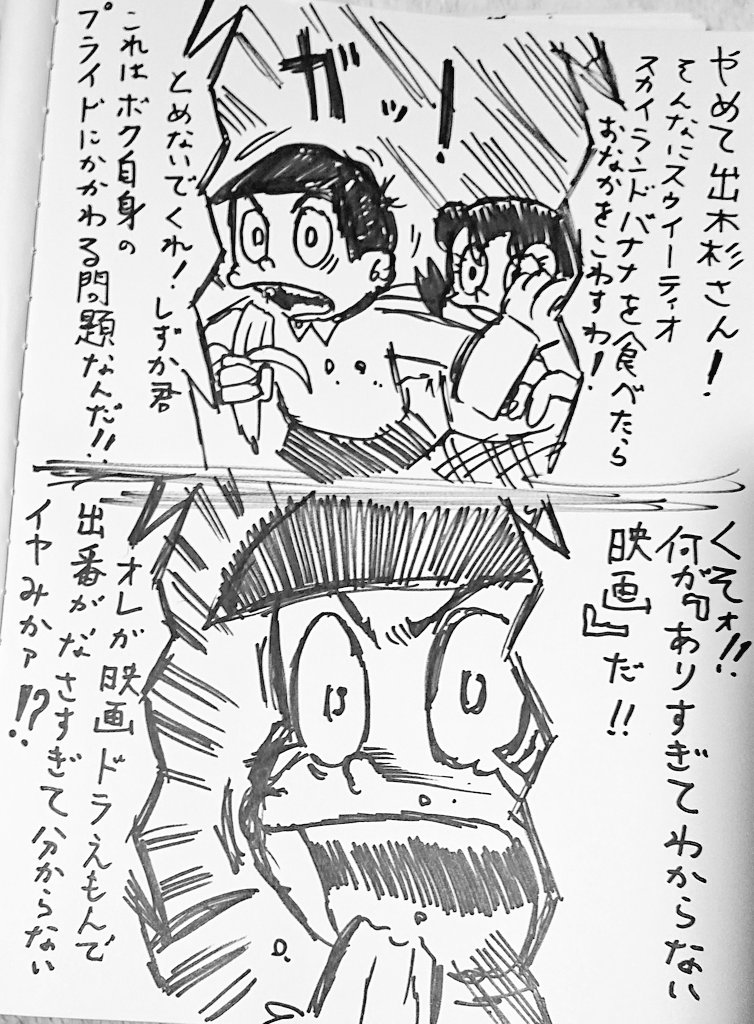 やめて出木杉さん!
そんなにスウィーティオ
スカイランドバナナを食べたら
おなかをこわすわ!
ガッ!
とめないでくれ!しずか君
これはボク自身の
プライドにかかわる問題なんだ!!
くそォ!!
何が『ありすぎてわからない
映画』だ!!
オレが映画ドラえもんで
出番がなさすぎて分からない
イヤみかァ!?